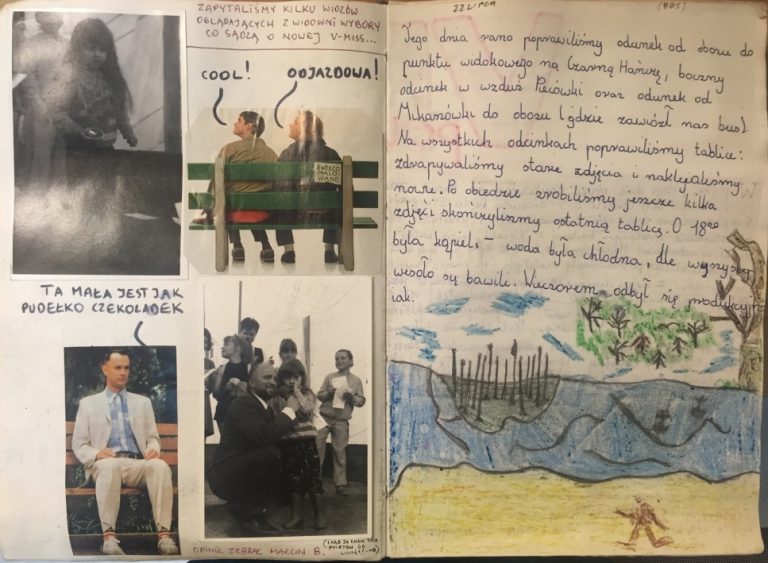 ZAPYTALIŚMY KILKU WIDZÓW
OGLĄDAJĄCYCH Z WIDOWNI WYBORY
CO SĄDZĄ O NOWEJ V-MISS...
COOL!
ODJAZDOWA!
ŚWIEŻO
MALO
WANE
TA MAŁA JEST JAK
PUDEŁKO CZEKOLADEK
OPINIE ZEBRAŁ MARCIN B.
22 LIPCA
Tego dnia rano poprawiliśmy odunek od obozu do
punktu widokowego na Czarną Hańczę, boczny
odunek w wzduż Pierówki oraz odunek od
Mikaszówki do obozu (gdzie zawiózł nas bus)
Na wszystkich odcinkach poprawiliśmy tablice:
zdrapywaliśmy stare zdjęcia i naklejaliśmy
nowe. Po obiedzie zrobiliśmy jeszcze kilka
zdjęć i skończyliśmy ostatnią tablicę. O 18ºº
była kąpiel – woda była chłodna, dle wszyscy
wesoło się bawili. Wieczorem odbył się produkcyjn
iak.